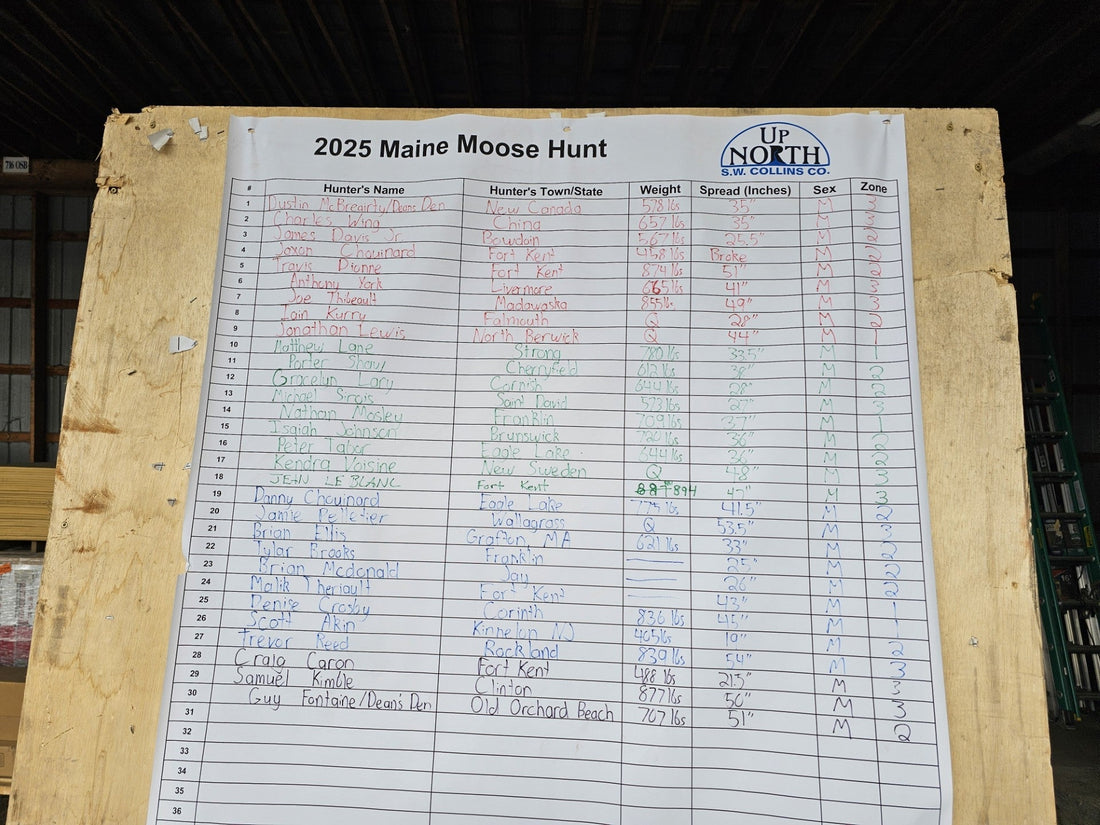 716 OSB
2025 Maine Moose Hunt
UP NORTH
S.W. COLLINS CO.
# Hunter's Name Hunter's Town/State Weight Spread (Inches) Sex Zone
1 Dustin McBreairty/Deans Den New Canada 578 lbs 35" M 3
2 Charles Wing China 657 lbs 35" M 3
3 James Davis Jr. Bowdoin 567 lbs 25.5" M 2
4 Jaxon Chouinard Fort Kent 458 lbs Broke M 2
5 Travis Dionne Fort Kent 874 lbs 51" M 2
6 Anthony York Livermore 665 lbs 41" M 3
7 Joe Thibeault Madawaska 855 lbs 49" M 3
8 Iain Kurry Falmouth Q 28" M 2
9 Jonathan Lewis North Berwick Q 44" M 1
10 Matthew Lane Strong 780 lbs 33.5" M 1
11 Porter Shaw Cherryfield 612 lbs 38" M 2
12 Gracelyn Lary Cornish 644 lbs 28" M 2
13 Michael Sirois Saint David 573 lbs 27" M 3
14 Nathan Mosley Franklin 709 lbs 37" M 1
15 Isaiah Johnson Brunswick 720 lbs 36" M 2
16 Peter Tabor Eagle Lake 644 lbs 36" M 2
17 Kendra Voisine New Sweden Q 48" M 3
18 JEAN LE BLANC Fort Kent 894 M 3
19 Danny Chouinard Eagle Lake 775 lbs 41.5" M 2
20 Jamie Pelletier Wallagrass Q 53.5" M 3
21 Brian Ellis Grafton, MA 621 lbs 33" M 2
22 Tylar Brooks Franklin 25" M 2
23 Brian Mcdonald Jay 26" M 2
24 Malik Theriault Fort Kent 43" M 1
25 Denise Crosby Corinth 836 lbs 45" M 1
26 Scott Akin Kinnelon NJ 405 lbs 19" M 2
27 Trevor Reed Rockland 839 lbs 54" M 3
28 Craig Caron Fort Kent 488 lbs 21.5" M 3
29 Samuel Kimble Clinton 877 lbs 56" M 3
30 Guy Fontaine/Dean's Den Old Orchard Beach 767 lbs 51" M 2
31
32
33
34
35
36